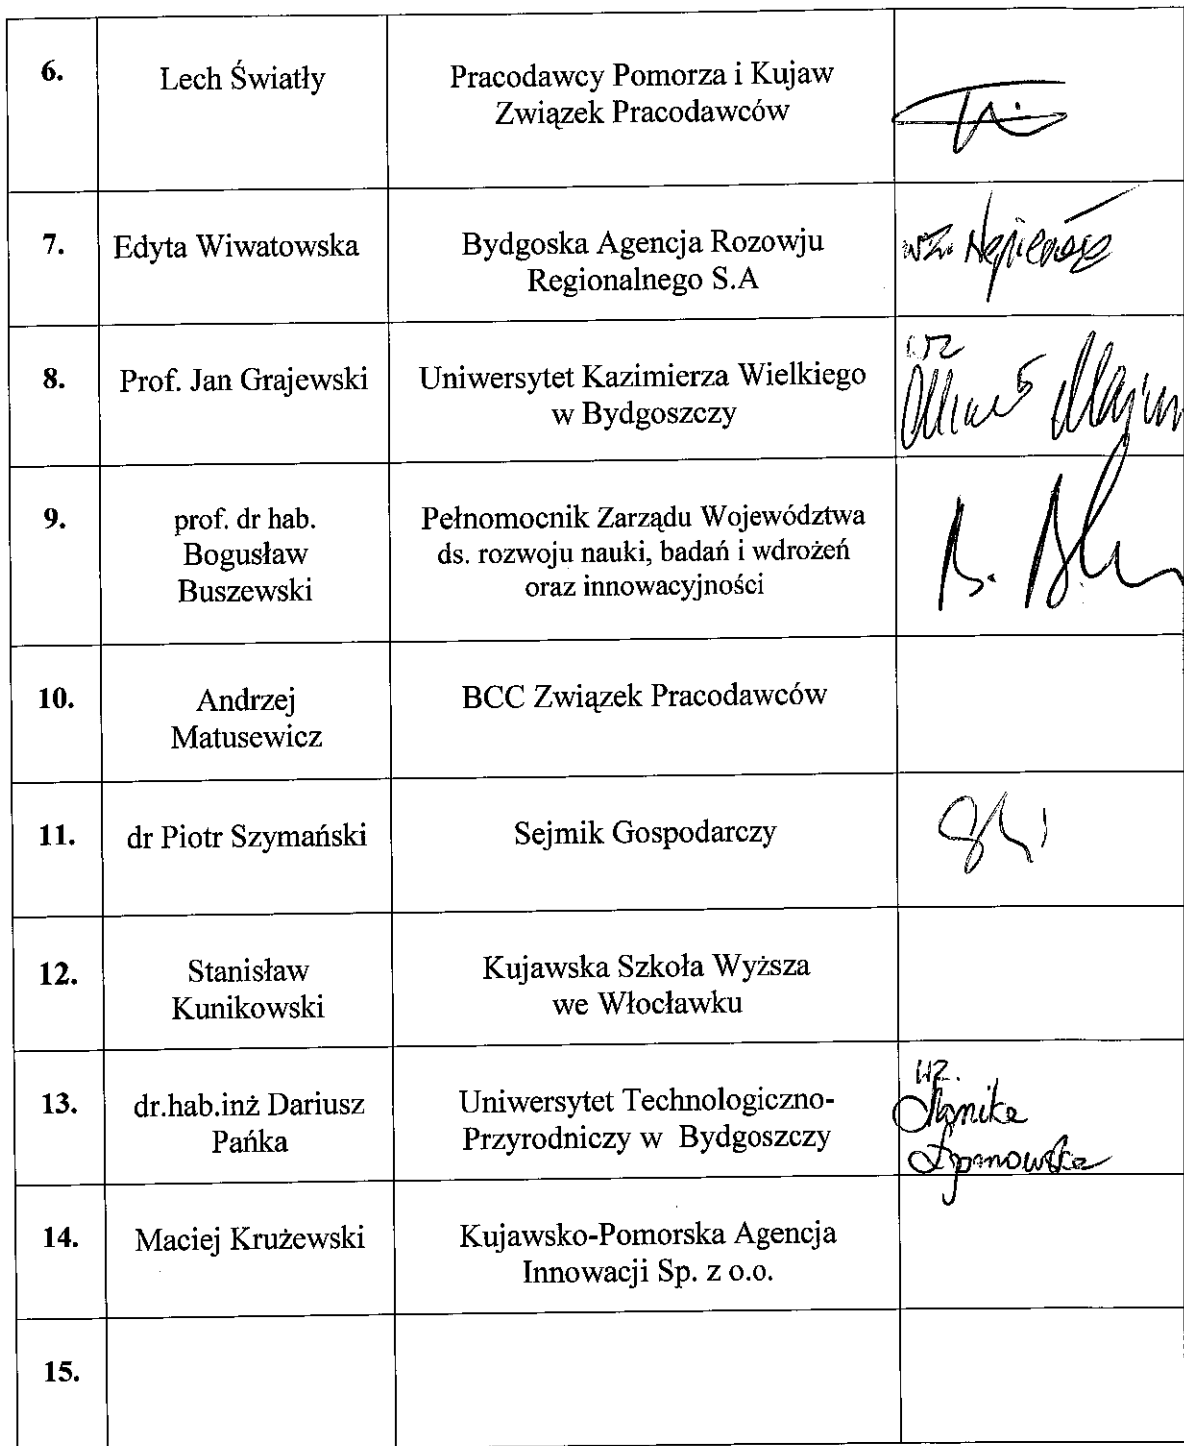 6.
Lech Światły
Pracodawcy Pomorza i Kujaw
Związek Pracodawców
7.
Edyta Wiwatowska
Bydgoska Agencja Rozowju
Regionalnego S.A
wz.
8.
Prof. Jan Grajewski
Uniwersytet Kazimierza Wielkiego
w Bydgoszczy
wz
9.
prof. dr hab.
Bogusław
Buszewski
Pełnomocnik Zarządu Województwa
ds. rozwoju nauki, badań i wdrożeń
oraz innowacyjności
10.
Andrzej
Matusewicz
BCC Związek Pracodawców
11.
dr Piotr Szymański
Sejmik Gospodarczy
12.
Stanisław
Kunikowski
Kujawska Szkoła Wyższa
we Włocławku
13.
dr.hab.inż Dariusz
Pańka
Uniwersytet Technologiczno-
Przyrodniczy w Bydgoszczy
wz.
14.
Maciej Krużewski
Kujawsko-Pomorska Agencja
Innowacji Sp. z o.o.
15.